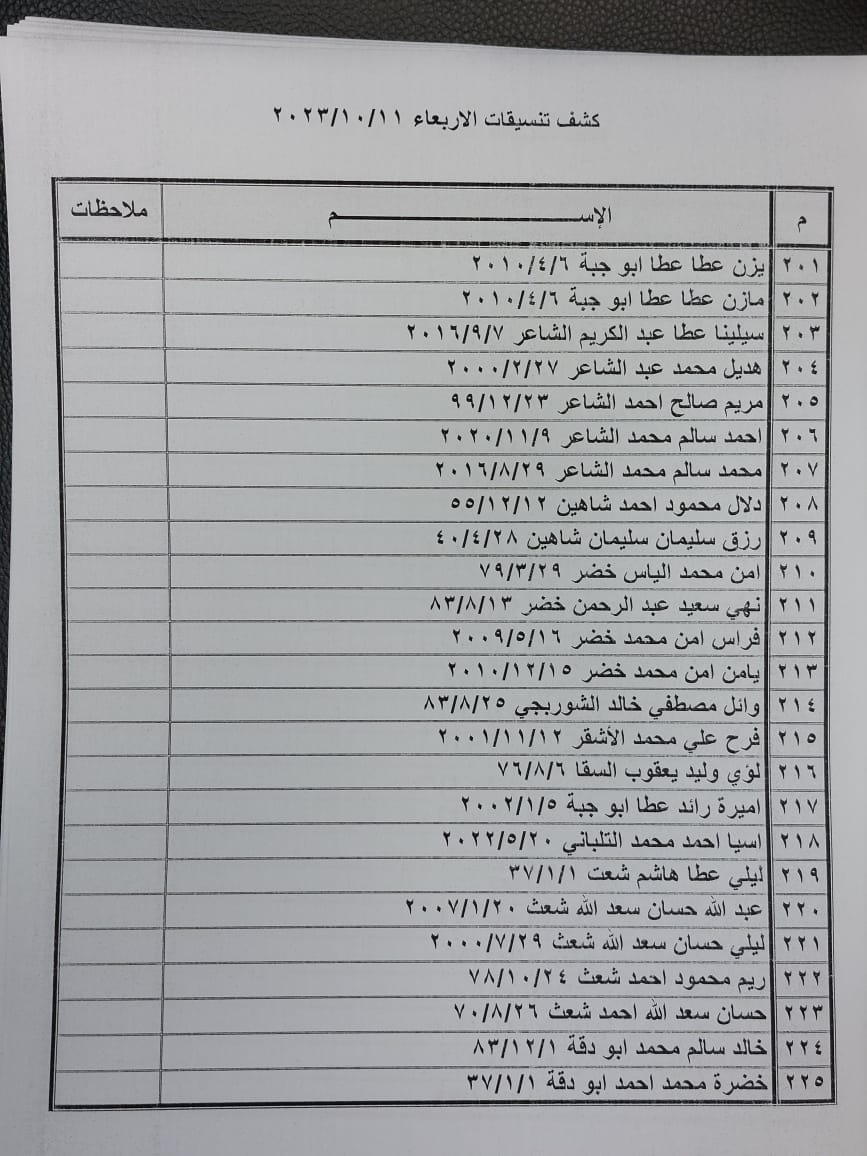 كشف تنسيقات الاربعاء ٢٠٢٣/١٠/١١
م الإســـــــــم ملاحظات
٢٠١ يزن عطا عطا ابو جبة ٢٠١٠/٤/٦
٢٠٢ مازن عطا عطا ابو جبة ٢٠١٠/٤/٦
٢٠٣ سيلينا عطا عبد الكريم الشاعر ٢٠١٦/٩/٧
٢٠٤ هديل محمد عبد الشاعر ٢٠٠٠/٢/٢٧
٢٠٥ مريم صالح احمد الشاعر ٩٩/١٢/٢٣
٢٠٦ احمد سالم محمد الشاعر ٢٠٢٠/١١/٩
٢٠٧ محمد سالم محمد الشاعر ٢٠١٦/٨/٢٩
٢٠٨ دلال محمود احمد شاهين ٥٥/١٢/١٢
٢٠٩ رزق سليمان سليمان شاهين ٤٠/٤/٢٨
٢١٠ امن محمد الياس خضر ٧٩/٣/٢٩
٢١١ نهي سعيد عبد الرحمن خضر ٨٣/٨/١٣
٢١٢ فراس امن محمد خضر ٢٠٠٩/٥/١٦
٢١٣ يامن امن محمد خضر ٢٠١٠/١٢/١٥
٢١٤ وائل مصطفي خالد الشوربجي ٨٣/٨/٢٥
٢١٥ فرح علي محمد الأشقر ٢٠٠١/١١/١٢
٢١٦ لؤي وليد يعقوب السقا ٧٦/٨/٦
٢١٧ اميرة رائد عطا ابو جبة ٢٠٠٢/١/٥
٢١٨ اسيا احمد محمد التلباني ٢٠٢٢/٥/٢٠
٢١٩ ليلي عطا هاشم شعت ٣٧/١/١
٢٢٠ عبد الله حسان سعد الله شعث ٢٠٠٧/١/٢٠
٢٢١ ليلي حسان سعد الله شعث ٢٠٠٠/٧/٢٩
٢٢٢ ريم محمود احمد شعث ٧٨/١٠/٢٤
٢٢٣ حسان سعد الله احمد شعث ٧٠/٨/٢٦
٢٢٤ خالد سالم محمد ابو دقة ٨٣/١٢/١
٢٢٥ خضرة محمد احمد ابو دقة ٣٧/١/١